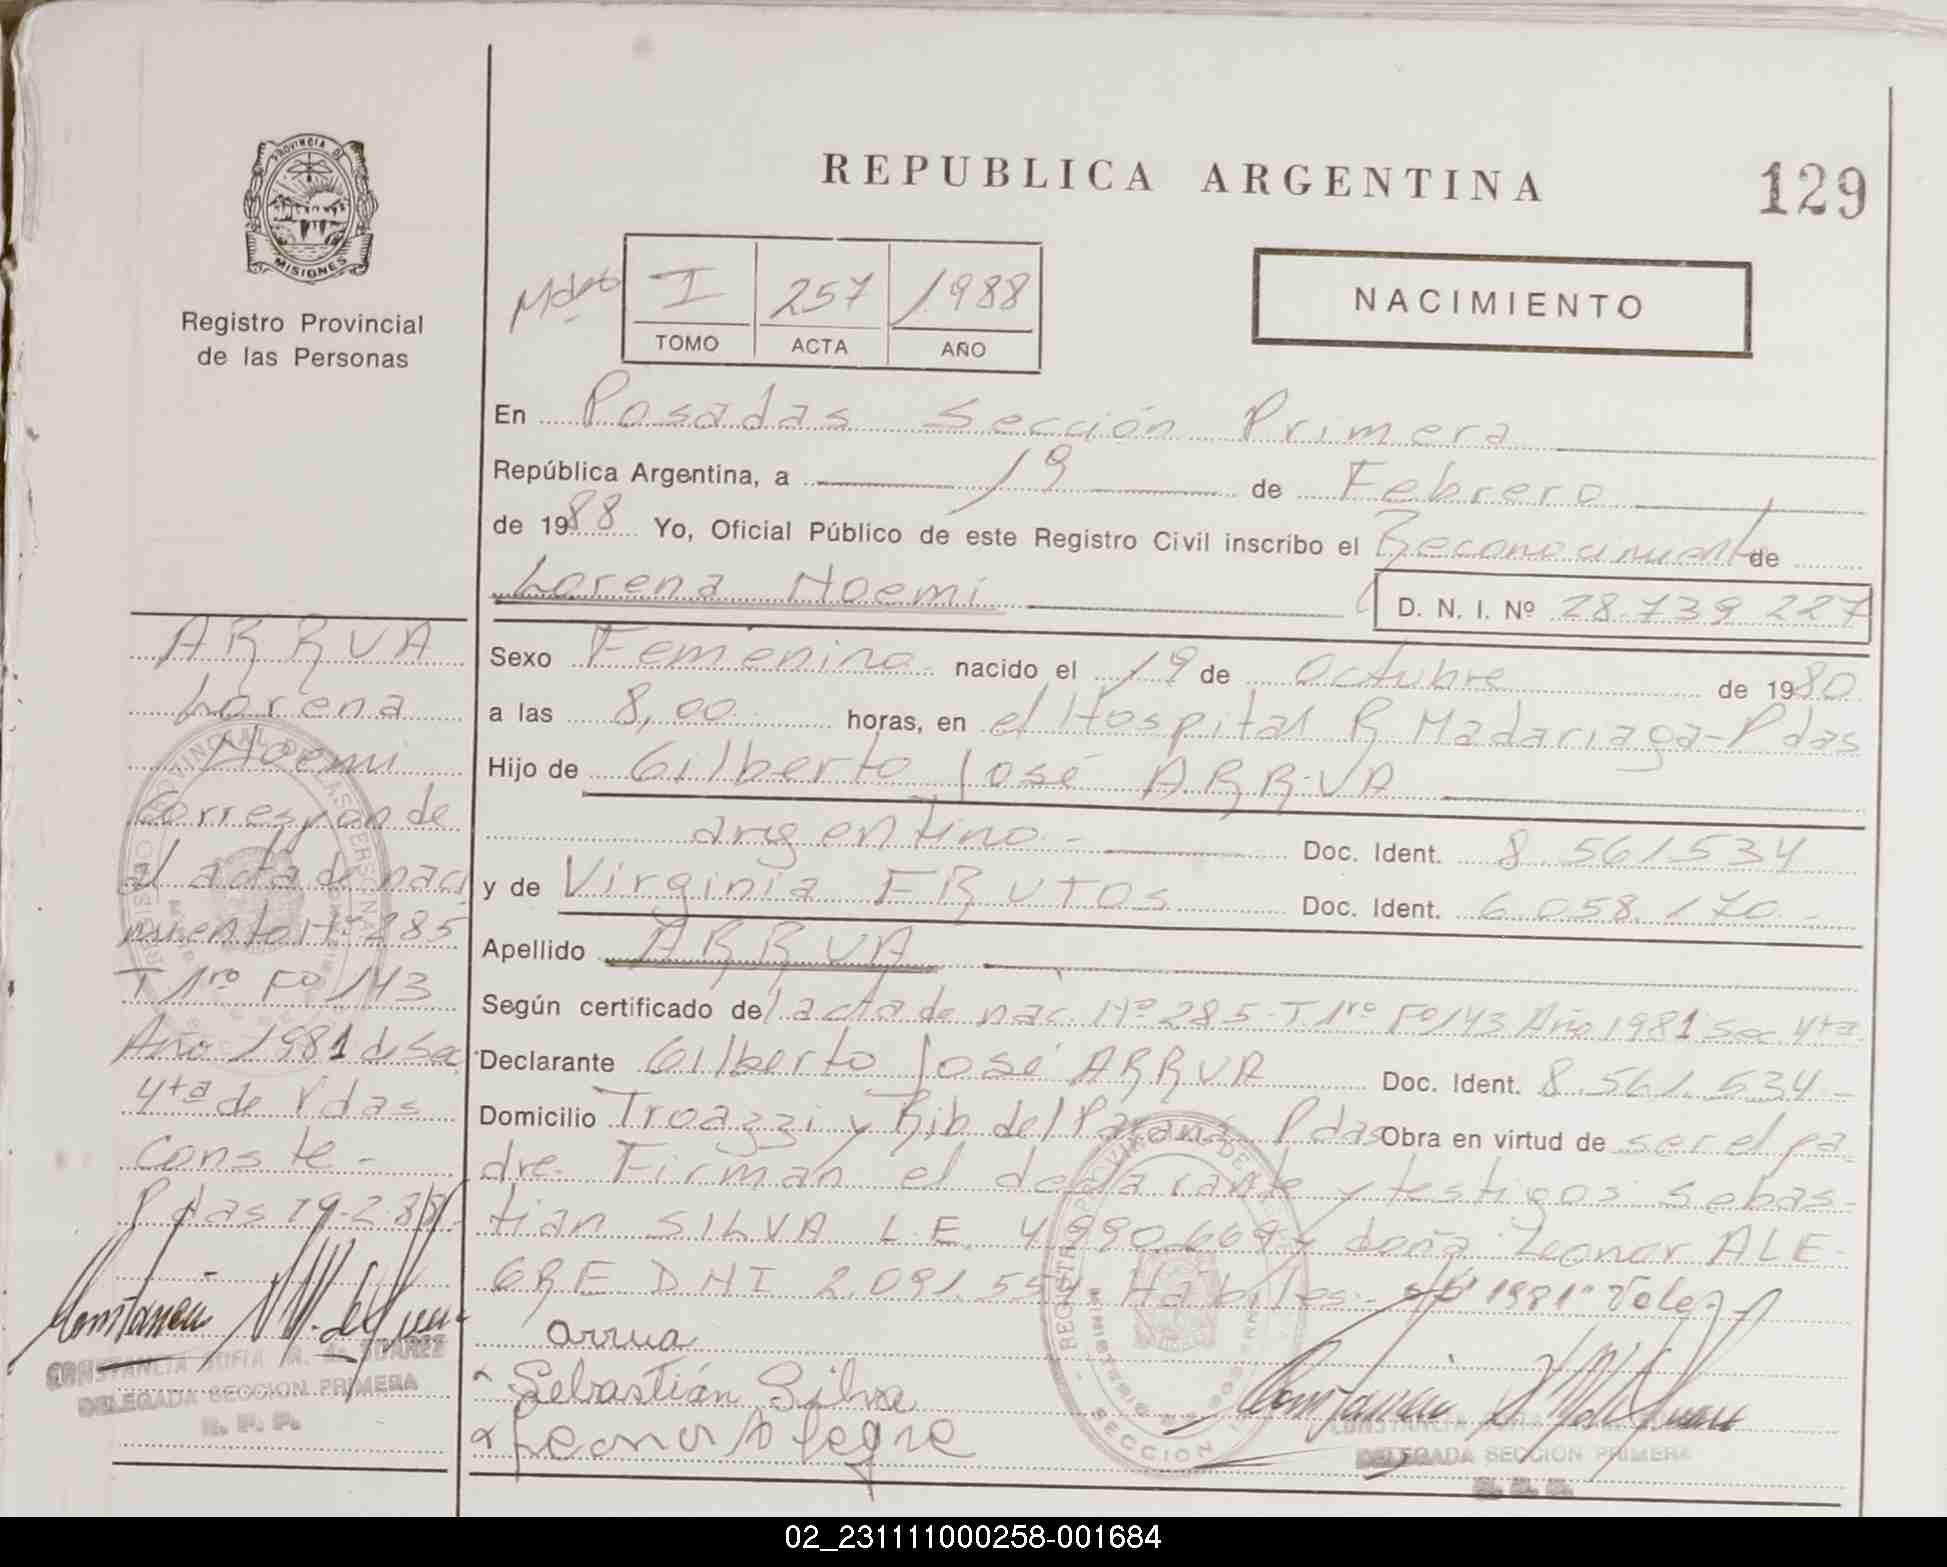 REPUBLICA ARGENTINA
129
PROVINCIA DE
MISIONES
Registro Provincial
de las Personas
I 257 1988
TOMO ACTA AÑO
NACIMIENTO
En Posadas Sección Primera
República Argentina, a 19 de Febrero
de 1988 Yo, Oficial Público de este Registro Civil inscribo el Reconocimiento de
Lorena Noemi D. N. I. Nº 28.739.227
Sexo Femenino nacido el 19 de Octubre de 1980
a las 8,00 horas, en el Hospital R Madariaga-Pdas
Hijo de Gilberto José ARRUA
argentino - Doc. Ident. 8.561534
y de Virginia FRUTOS Doc. Ident. 6.058.170-
Apellido ARRUA
Según certificado del acta de nac. Nº 285-T 1ro Fº 143 Año 1981 Sec. 4ta
Declarante Gilberto José ARRUA Doc. Ident. 8.561.534-
Domicilio Troazzi y Rib del Paraná Pdas Obra en virtud de ser el pa
dre. Firman el declarante y testigos Sebas-
tian SILVA L.E. 4.990.669 y doña Leonor ALE-
GRE DNI 2.091.554. Habiles- 1981" Vale
arrua
Sebastián Silva
Leonor Alegre
CONSTANCIA
DELEGADA SECCION PRIMERA
R. P. P.
ARRUA
Lorena
Noemi
Corresponde
al acta de naci
miento Nº 285
T 1ro Fº 143
Año 1981 d Sec
4ta de Pdas
Conste-
Pdas 19-2-88-
CONSTANCIA SOFIA M. de SUAREZ
DELEGADA SECCION PRIMERA
R. P. P.
02_231111000258-001684